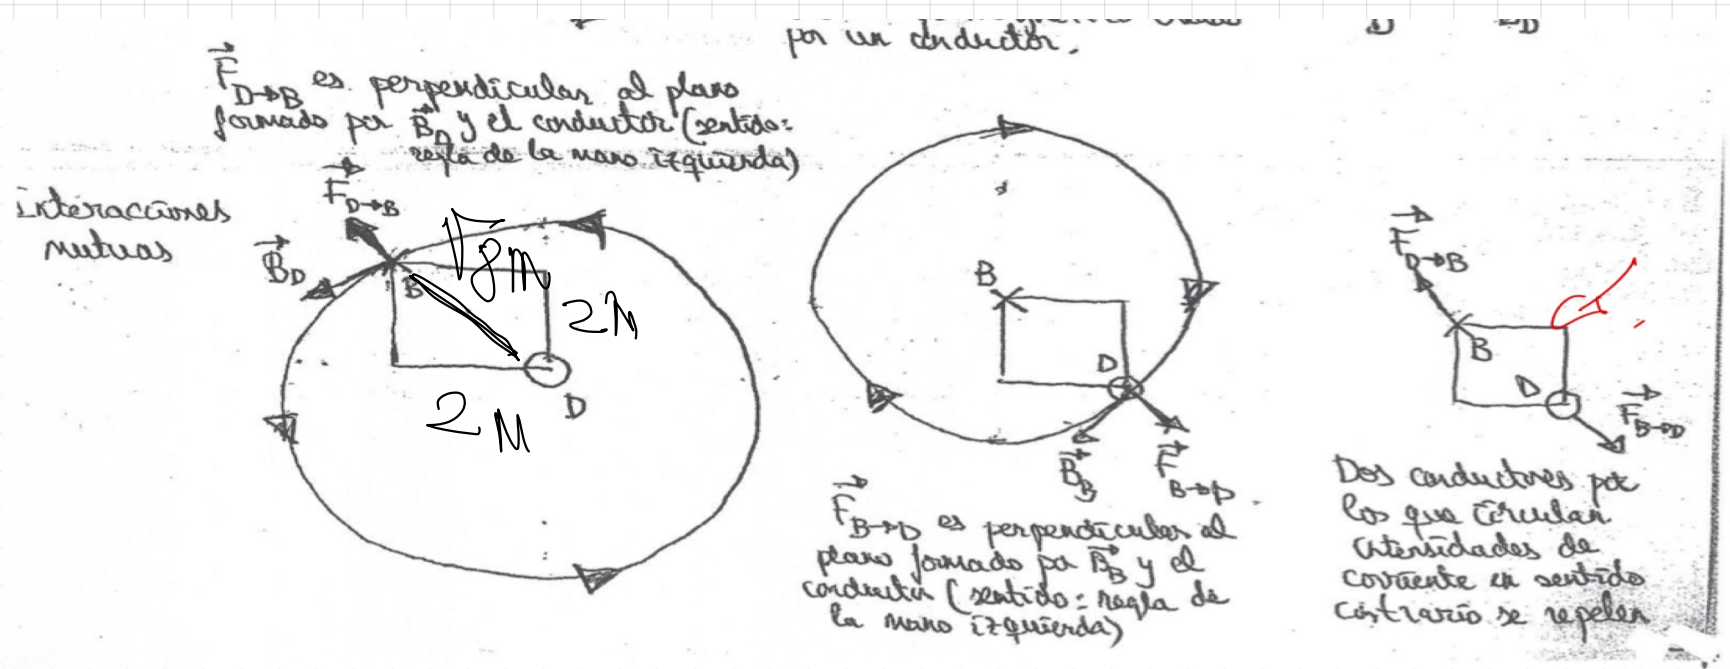 por un conductor.
F D→B es perpendicular al plano
formado por B D y el conductor (sentido:
regla de la mano izquierda)
interacciones
mutuas
F D→B
B D
B
√8 m
2 m
2 m
D
B
D
B B
F B→D
F B→D es perpendicular al
plano formado por B B y el
conductor (sentido: regla de
la mano izquierda)
F D→B
B
D
F B→D
Dos conductores por
los que circulan
intensidades de
corriente en sentido
contrario se repelen